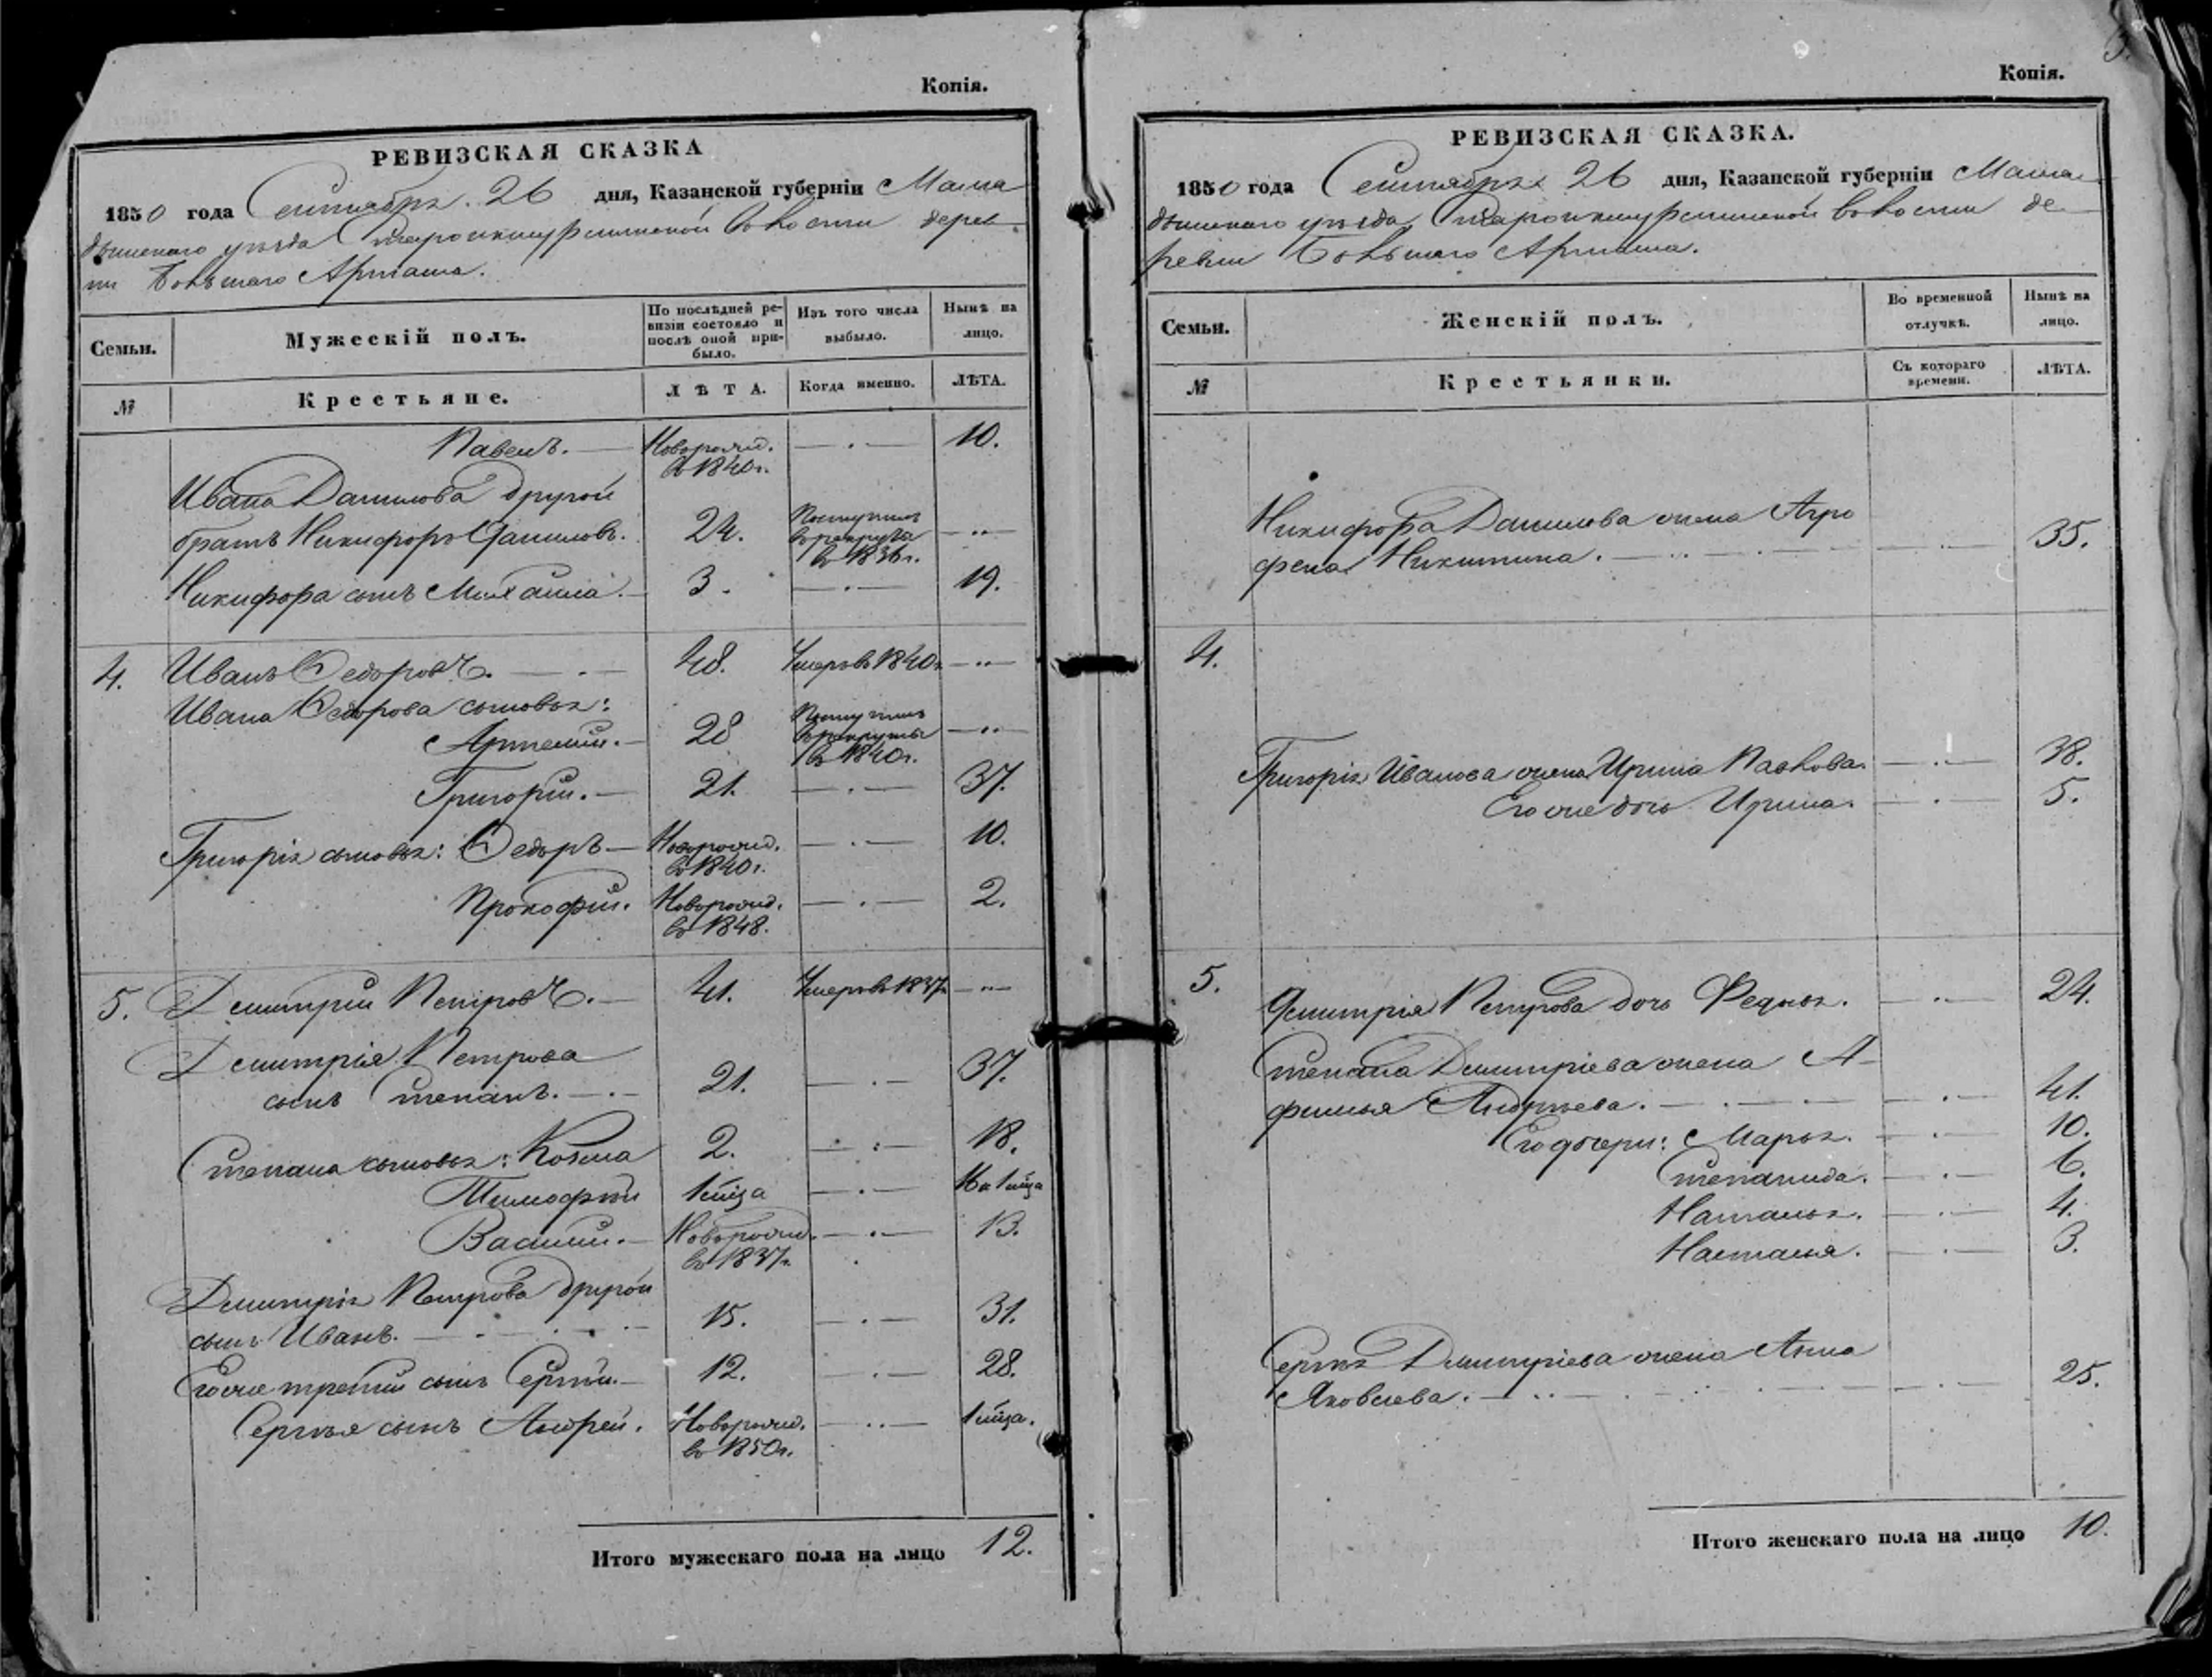 Копія.
РЕВИЗСКАЯ СКАЗКА
1850 года Сентября 26 дня, Казанской губерніи Мама
дышскаго уѣзда волости дерев
ни Большаго Арташа.
Семьи.
Мужескій полъ.
По послѣдней ре-
визіи состояло и
послѣ оной при-
было.
Изъ того числа
выбыло.
Нынѣ на
лицо.
№
Крестьяне.
ЛѢТА.
Когда именно.
ЛѢТА.
Павелъ. Новорожд. 10.
въ 1840г.
Ивана Данилова другой
братъ Никифоръ Даниловъ. 24. Поступилъ
въ рекруты
въ 1836г.
Никифора сынъ Михаила. 3. 19.
4. Иванъ Ѳедоровъ. 48. Умеръ въ 1840г.
Ивана Ѳедорова сыновья:
Артемій. 28 Поступилъ
въ рекруты
въ 1840г.
Григорій. 21. 37.
Григорія сыновья: Ѳедоръ Новорожд. 10.
въ 1840г.
Прокофій. Новорожд. 2.
въ 1848.
5. Демитрій Петровъ. 41. Умеръ въ 1837г.
Демитрія Петрова
сынъ Степанъ. 21. 37.
Степана сыновья: Козма 2. 18.
Тимофѣй
Василій. Новорожд. 13.
въ 1837г.
Дмитрія Петрова другой
сынъ Иванъ. 15. 31.
Его же третій сынъ Сергѣй. 12. 28.
Сергѣя сынъ Андрей. Новорожд.
въ 1850г.
Итого мужескаго пола на лицо 12.
Копія.
РЕВИЗСКАЯ СКАЗКА.
1850 года Сентября 26 дня, Казанской губерніи Мама
дышскаго уѣзда волости де
ревни Большаго Арташа.
Семьи.
Женскій полъ.
Во временной
отлучкѣ.
Нынѣ на
лицо.
№
Крестьянки.
Съ котораго
времени.
ЛѢТА.
Никифора Данилова жена Агро
фена Никитина. 35.
4.
Григорія Иванова жена Ирина Павлова. 38.
Его же дочь Ирина. 5.
5.
Демитрія Петрова дочь Федосья. 24.
Степана Дмитріева жена А
фимья Андреева. 41.
Его дочери: Марья. 10.
Степанида. 6.
Наталья. 4.
Настасья. 3.
Сергѣя Дмитріева жена Анна
Яковлева. 25.
Итого женскаго пола на лицо 10.